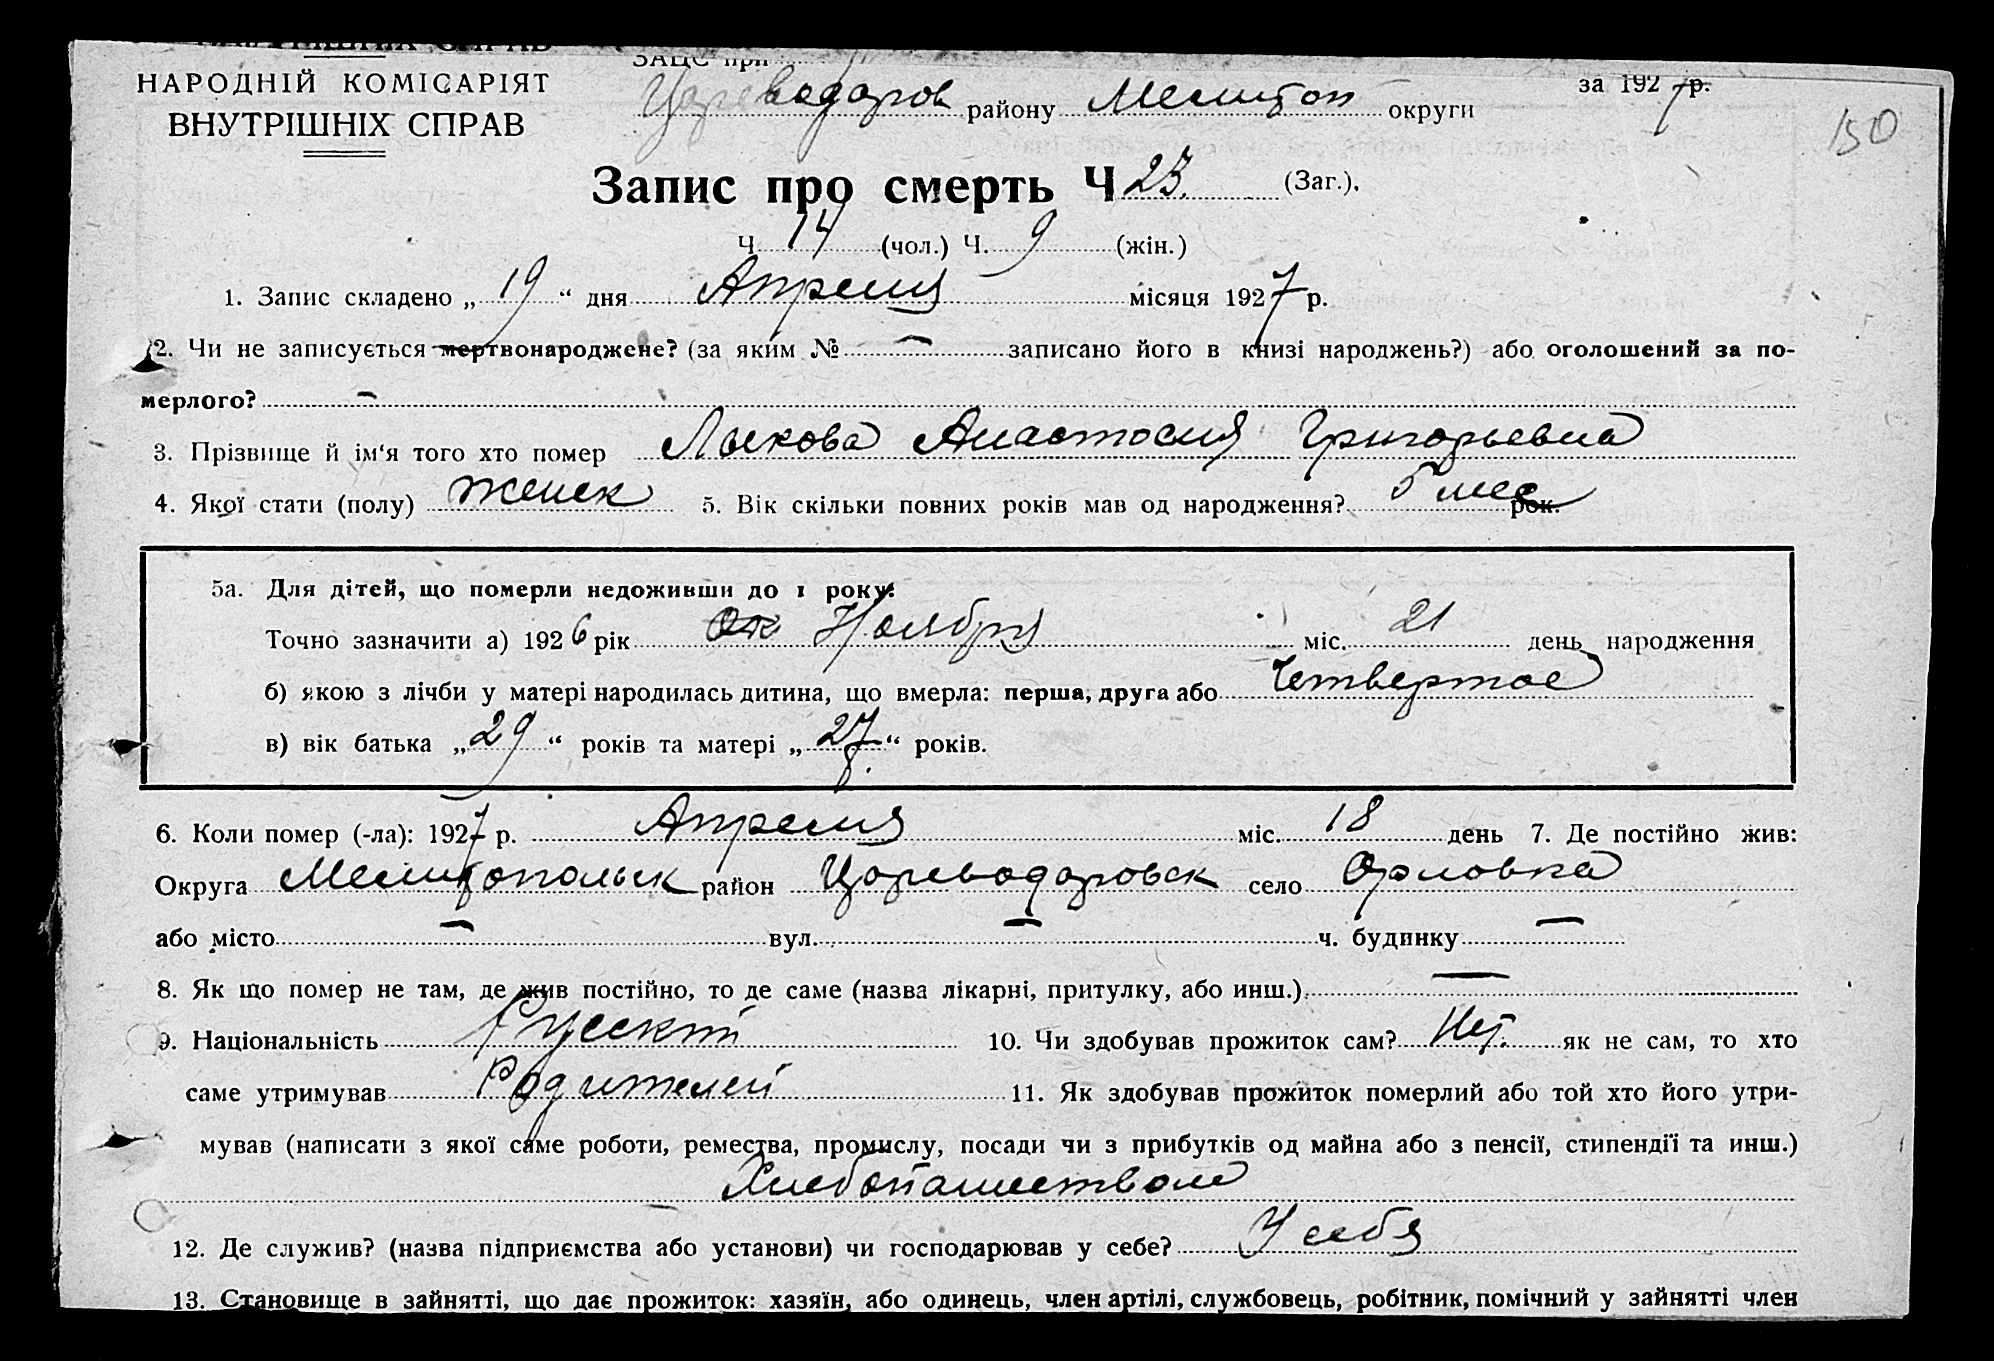 ВНУТРІШНІХ СПРАВ
НАРОДНІЙ КОМІСАРІЯТ
ВНУТРІШНІХ СПРАВ
ЗАЦС при
Цареводаров району Мелитоп округи
за 1927 р.
150
Запис про смерть Ч 23. (Заг.).
Ч. 14 (чол.) Ч. 9 (жін.)
1. Запис складено „ 19 “ дня Апреля місяця 1927 р.
2. Чи не записується мертвонароджене? (за яким № — записано його в книзі народжень?) або оголошений за по-
мерлого? —
3. Прізвище й ім'я того хто помер Лыкова Анастосия Григорьевна
4. Якої стати (полу) женск 5. Вік скільки повних років мав од народження? 5 мес рок.
5а. Для дітей, що померли недоживши до 1 року:
Точно зазначити а) 1926 рік Ок Ноября міс. 21 день народження
б) якою з лічби у матері народилась дитина, що вмерла: перша, друга або Четвертое
в) вік батька „ 29 “ років та матері „ 27 “ років.
6. Коли помер (-ла): 1927 р. Апреля міс. 18 день 7. Де постійно жив:
Округа Мелитопольск район Цареводаровск село Орловка
або місто — вул. — ч. будинку —
8. Як що помер не там, де жив постійно, то де саме (назва лікарні, притулку, або инш.) —
9. Національність Русский 10. Чи здобував прожиток сам? Нет. як не сам, то хто
саме утримував Родителей 11. Як здобував прожиток померлий або той хто його утри-
мував (написати з якої саме роботи, ремества, промислу, посади чи з прибутків од майна або з пенсії, стипендії та инш.)
Хлебопашеством
12. Де служив? (назва підприємства або установи) чи господарював у себе? У себя
13. Становище в зайнятті, що дає прожиток: хазяїн, або одинець, член артілі, службовець, робітник, помічний у зайнятті член